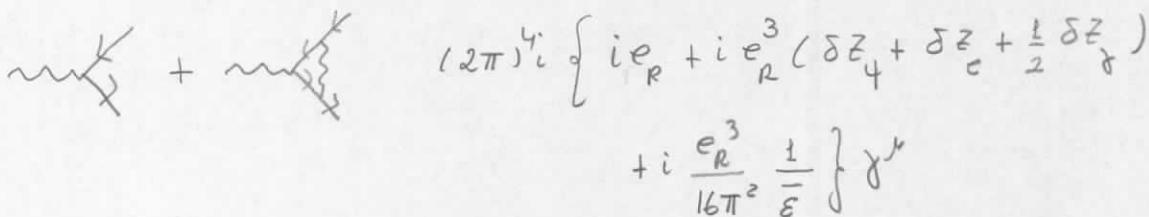 + (2π)⁴i { i e_R + i e_R³ (δZ_4 + δZ_e + 1/2 δZ_γ)
+ i e_R³/16π² 1/ε̄ } γ^μ